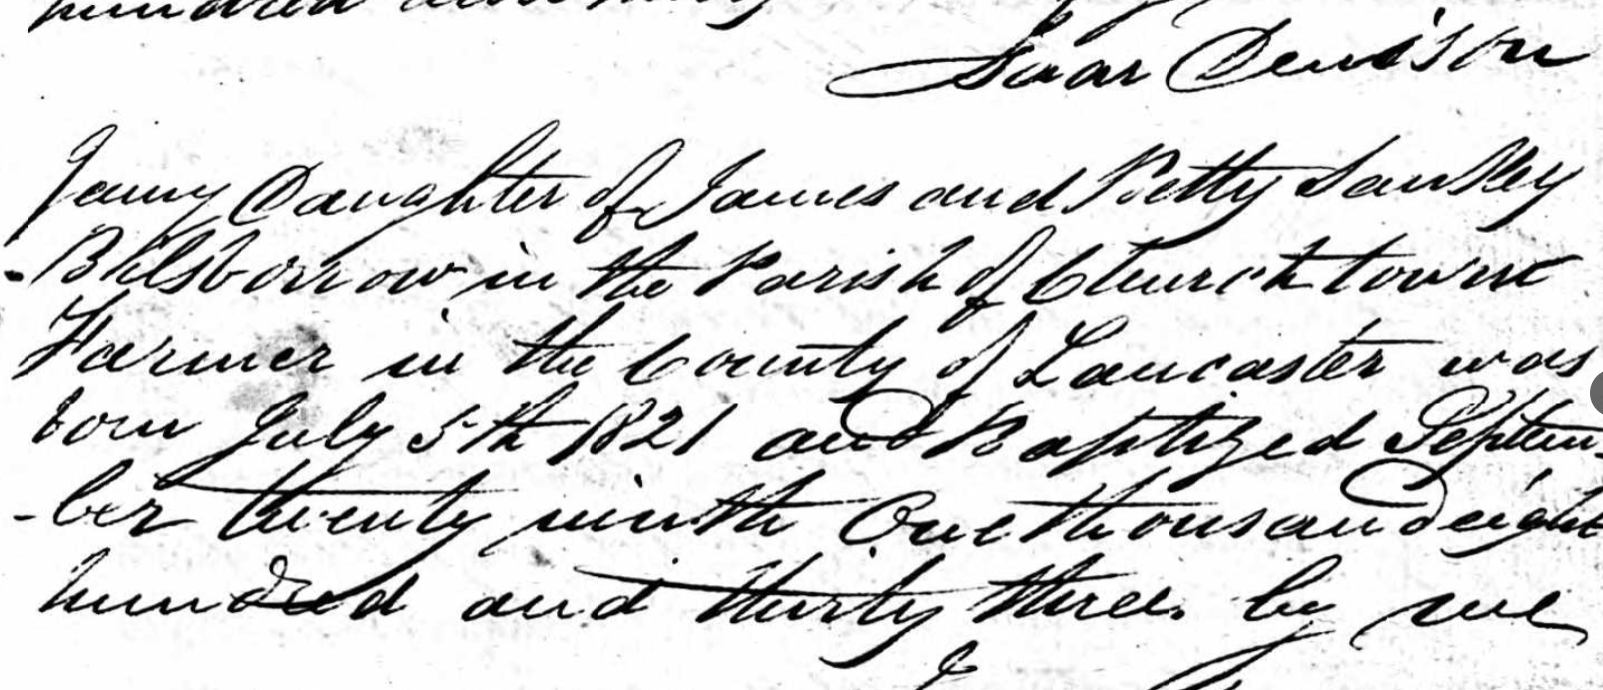 hundred and thirty
Isaac Denison
Jenny Daughter of James and Betty Sankley
Bilsborrow in the Parish of Church town
Farmer in the County of Lancaster was
born July 5th 1821 and Baptized Septem-
-ber twenty ninth One thousand eight
hundred and thirty three. by me